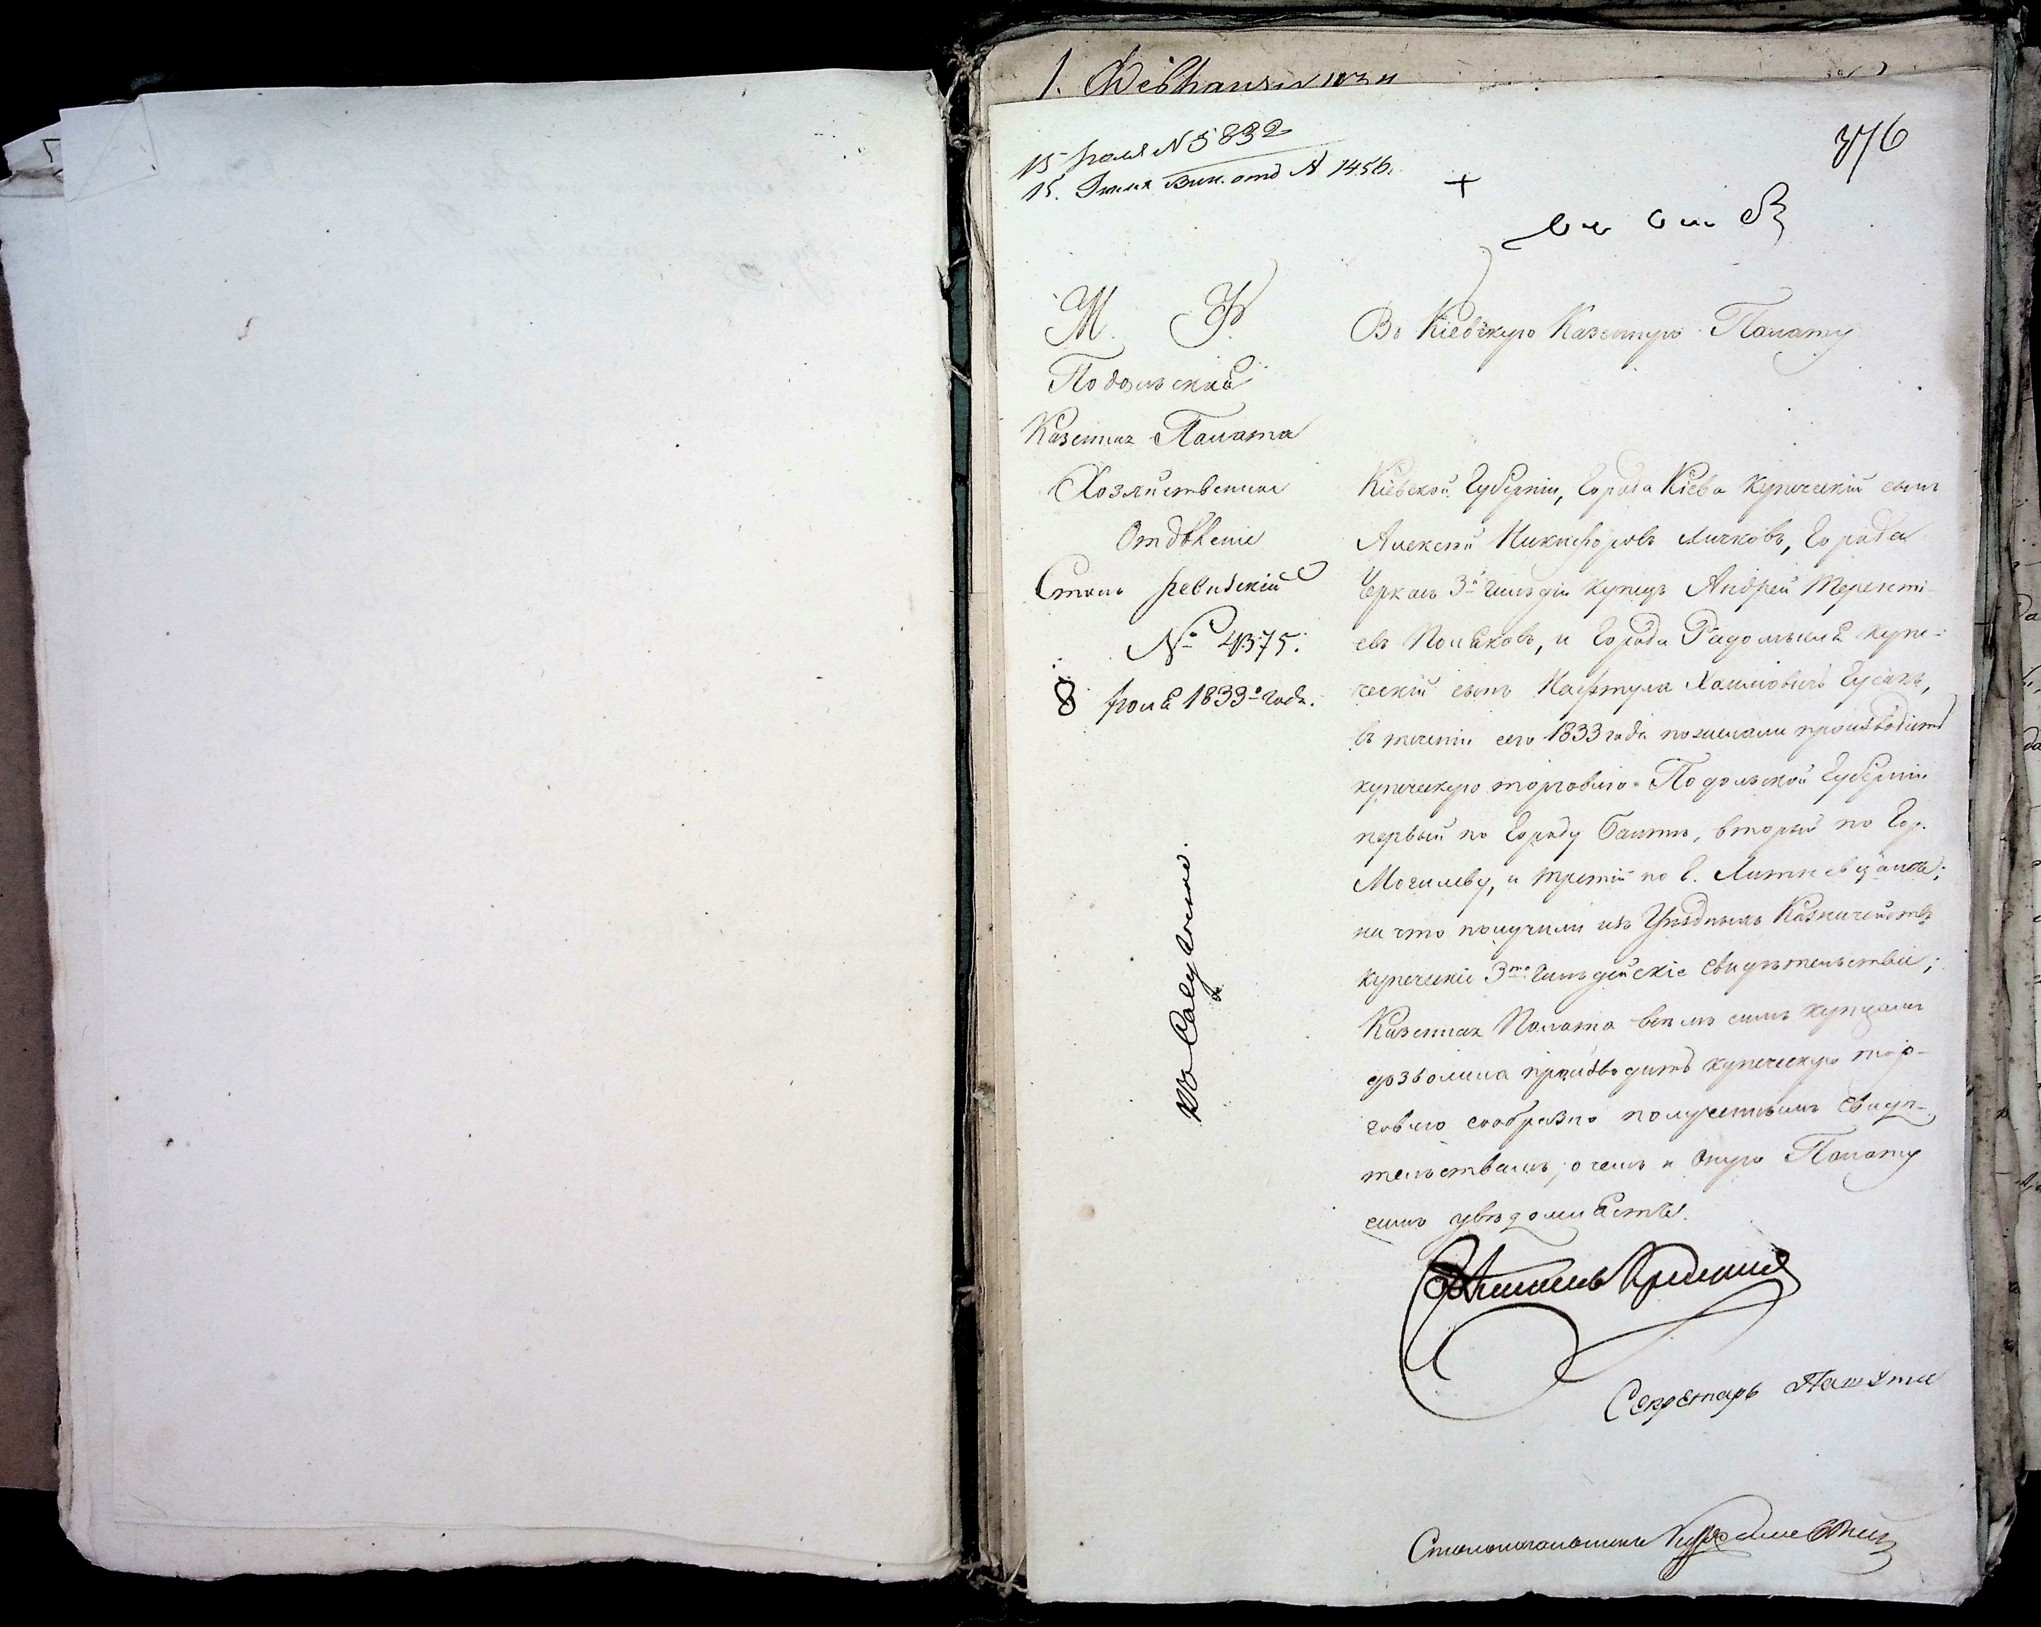 15 Іюля N 5832
15. Іюля Вин. отд N 1456.
376
М. Ф.
Подольская
Казенная Палата
Хозяйственное
Отдѣленіе
Столъ Ревизскій
№ 4375.
8 Іюля 1833го года.
Въ Кіевскую Казенную Палату
Кіевской Губерніи, Города Кіева купеческій сынъ
Алексѣй Никифоровъ Личковъ, Города
Черкасъ 3й Гильдіи купецъ Андрей Теренті-
евъ Поляковъ, и Города Радомысля купе-
ческій сынъ Нафтула Хаимовичъ Гусакъ,
въ теченіи сего 1833 года пожелали производить
купеческую торговлю Подольской Губерніи
первый по Городу Балтѣ, вторый по Гор.
Могилеву, и третій по г. Литинѣ;
на что получили изъ Уѣздныхъ Казначействъ
купеческіе 3ей Гильдейскіе свидѣтельства;
Казенная Палата всѣмъ симъ купцамъ
дозволила производить купеческую тор-
говлю сообразно полученнымъ свидѣ-
тельствамъ; о чемъ и оную Палату
симъ увѣдомляетъ.
Секретарь
Столоначальникъ